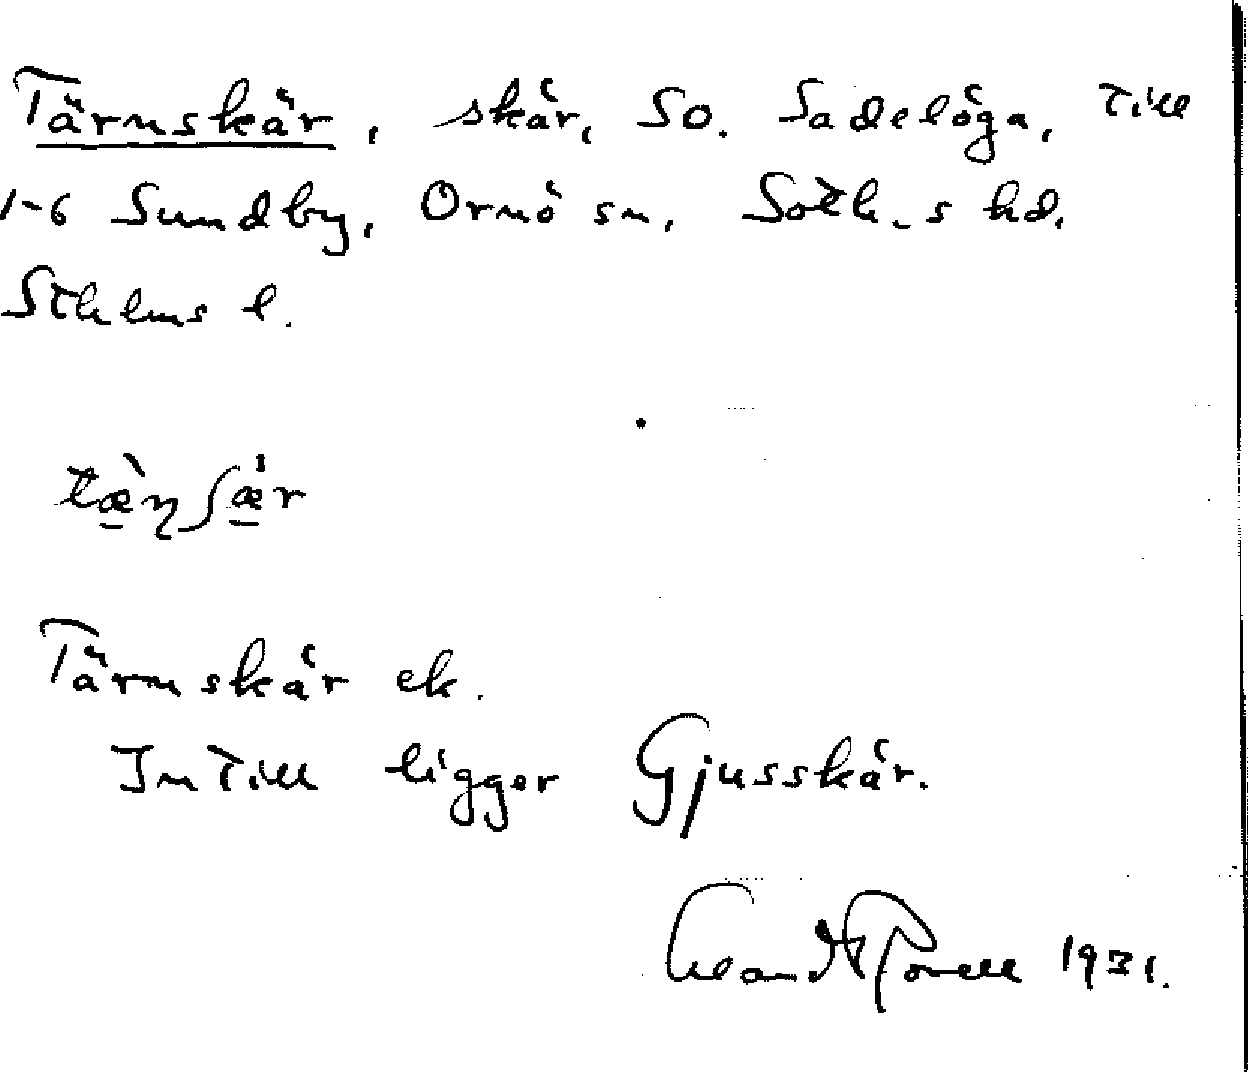 Tärnskär, skär, SO. Sadelöga, till
1-6 Sundby, Ornö sn, Soth-s hd.
Sthlms l.
tæ̀ηʃæ̀r
Tärnskär ek.
Intill ligger Gjusskär.
1931.